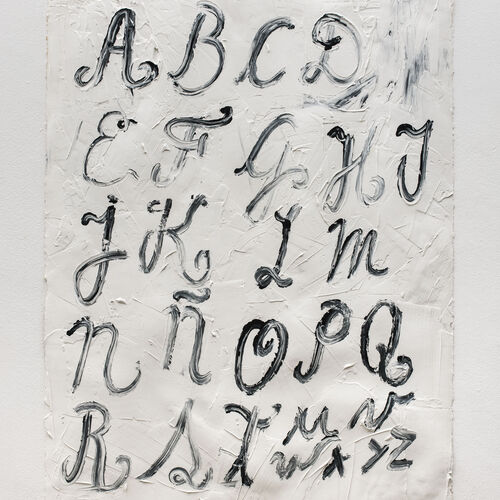 A B C D
E F G H I
J K L M
N Ñ O P Q
R S T U V
W X Y Z